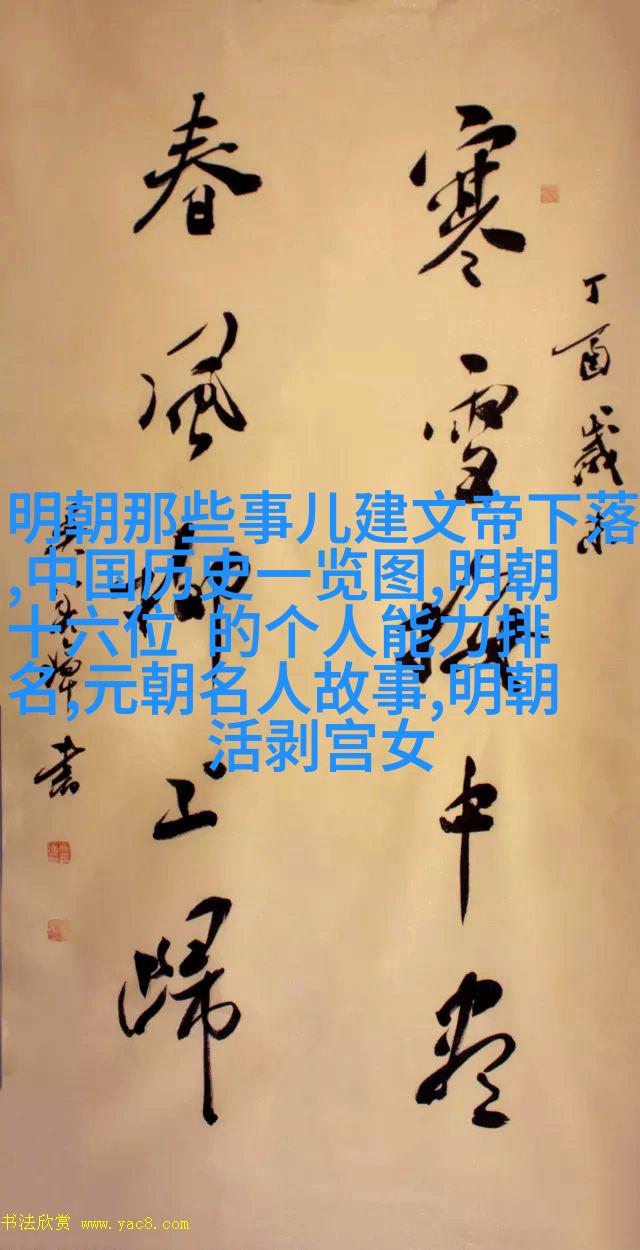 丁酉歲冬
寒雪梅中盡
春風柳上歸
書
明朝那些事儿建文帝下落
,中国历史一览图,明朝
十六位 的个人能力排
名,元朝名人故事,明朝
活剥宫女
书法欣赏 www.yac8.com